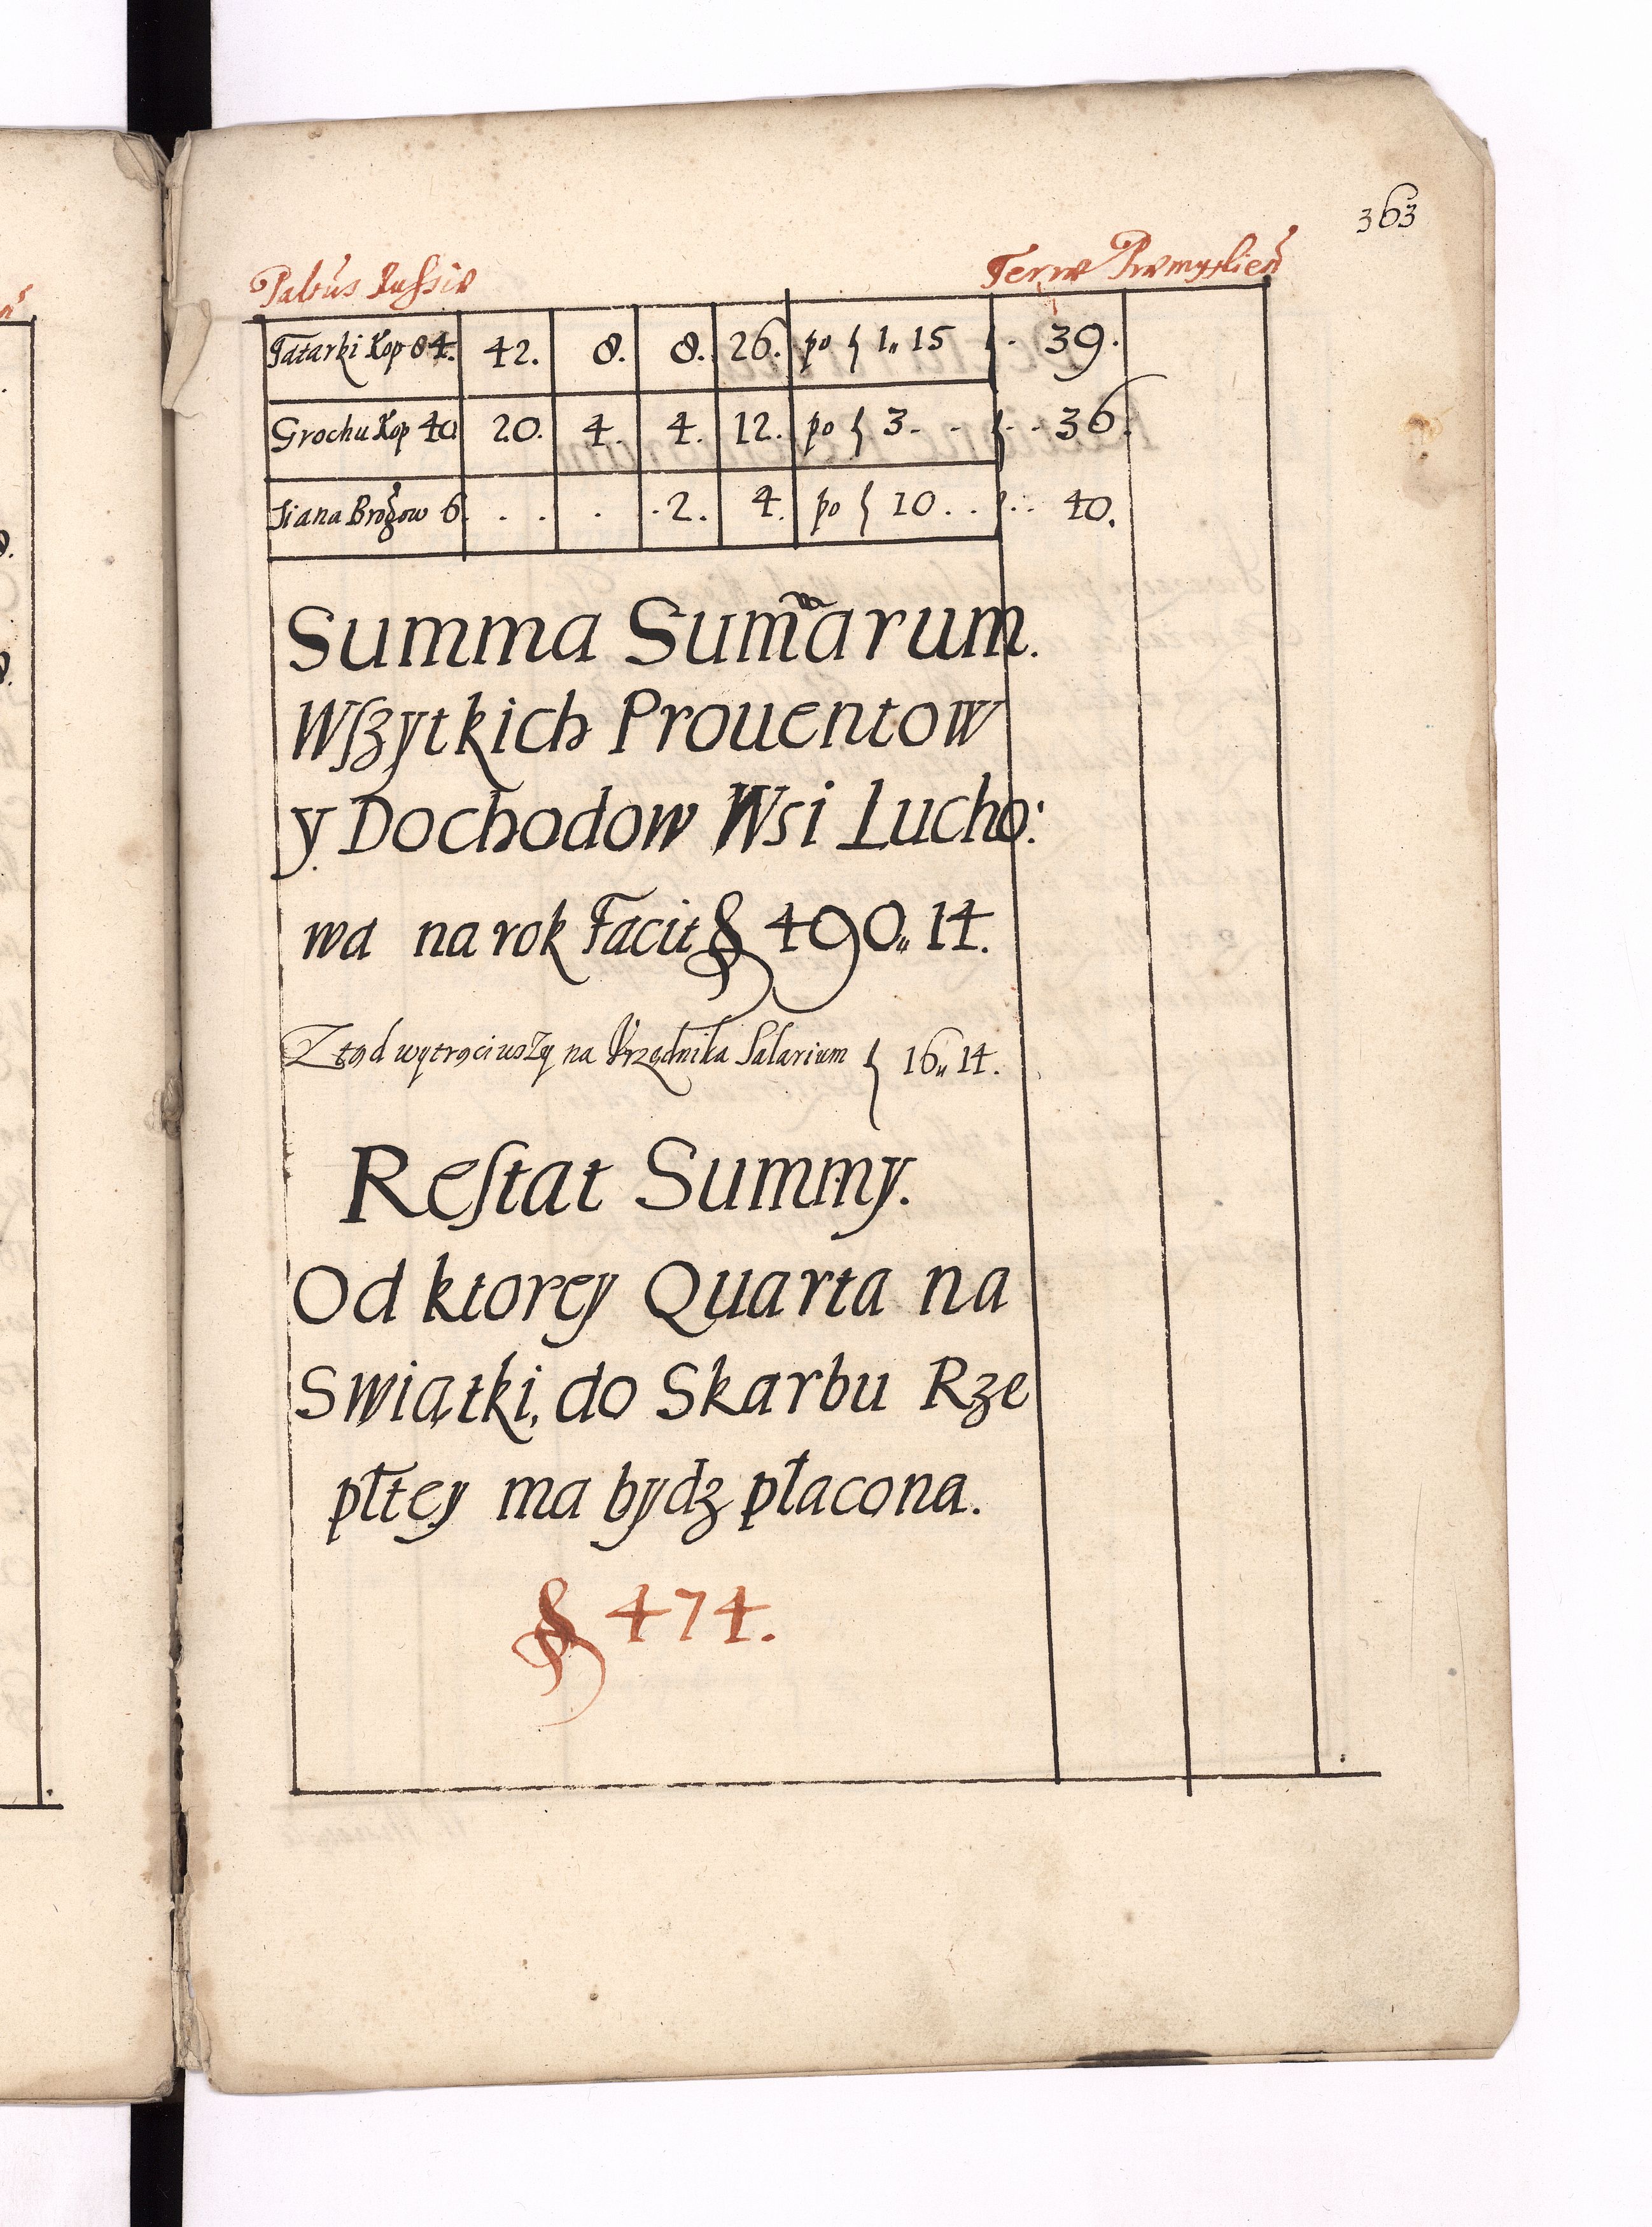 363
Palŭs Russiæ Terræ Præmyslieñ
Tatarki Kop 84. 42. 8. 8. 26. po { 1„ 15 { · 39.
Grochu Kop 40 20. 4. 4. 12. po { 3 - - { · · 36.
Siana Brogow 6. . . . . 2. 4. po { 10 . . { · · 40.
Summa Sum̃arum.
Wſzytkich Prouentow
y Dochodow Wsi Lucho:
wa na rok Facit § 490„ 14.
Z tąd wytrąciwszy na Vrzędnika Salarium { 16„ 14.
Reſtat Summy.
Od ktorey Quarta na
Swiątki, do Skarbu Rze
płtey ma bydz płacona.
§ 474.